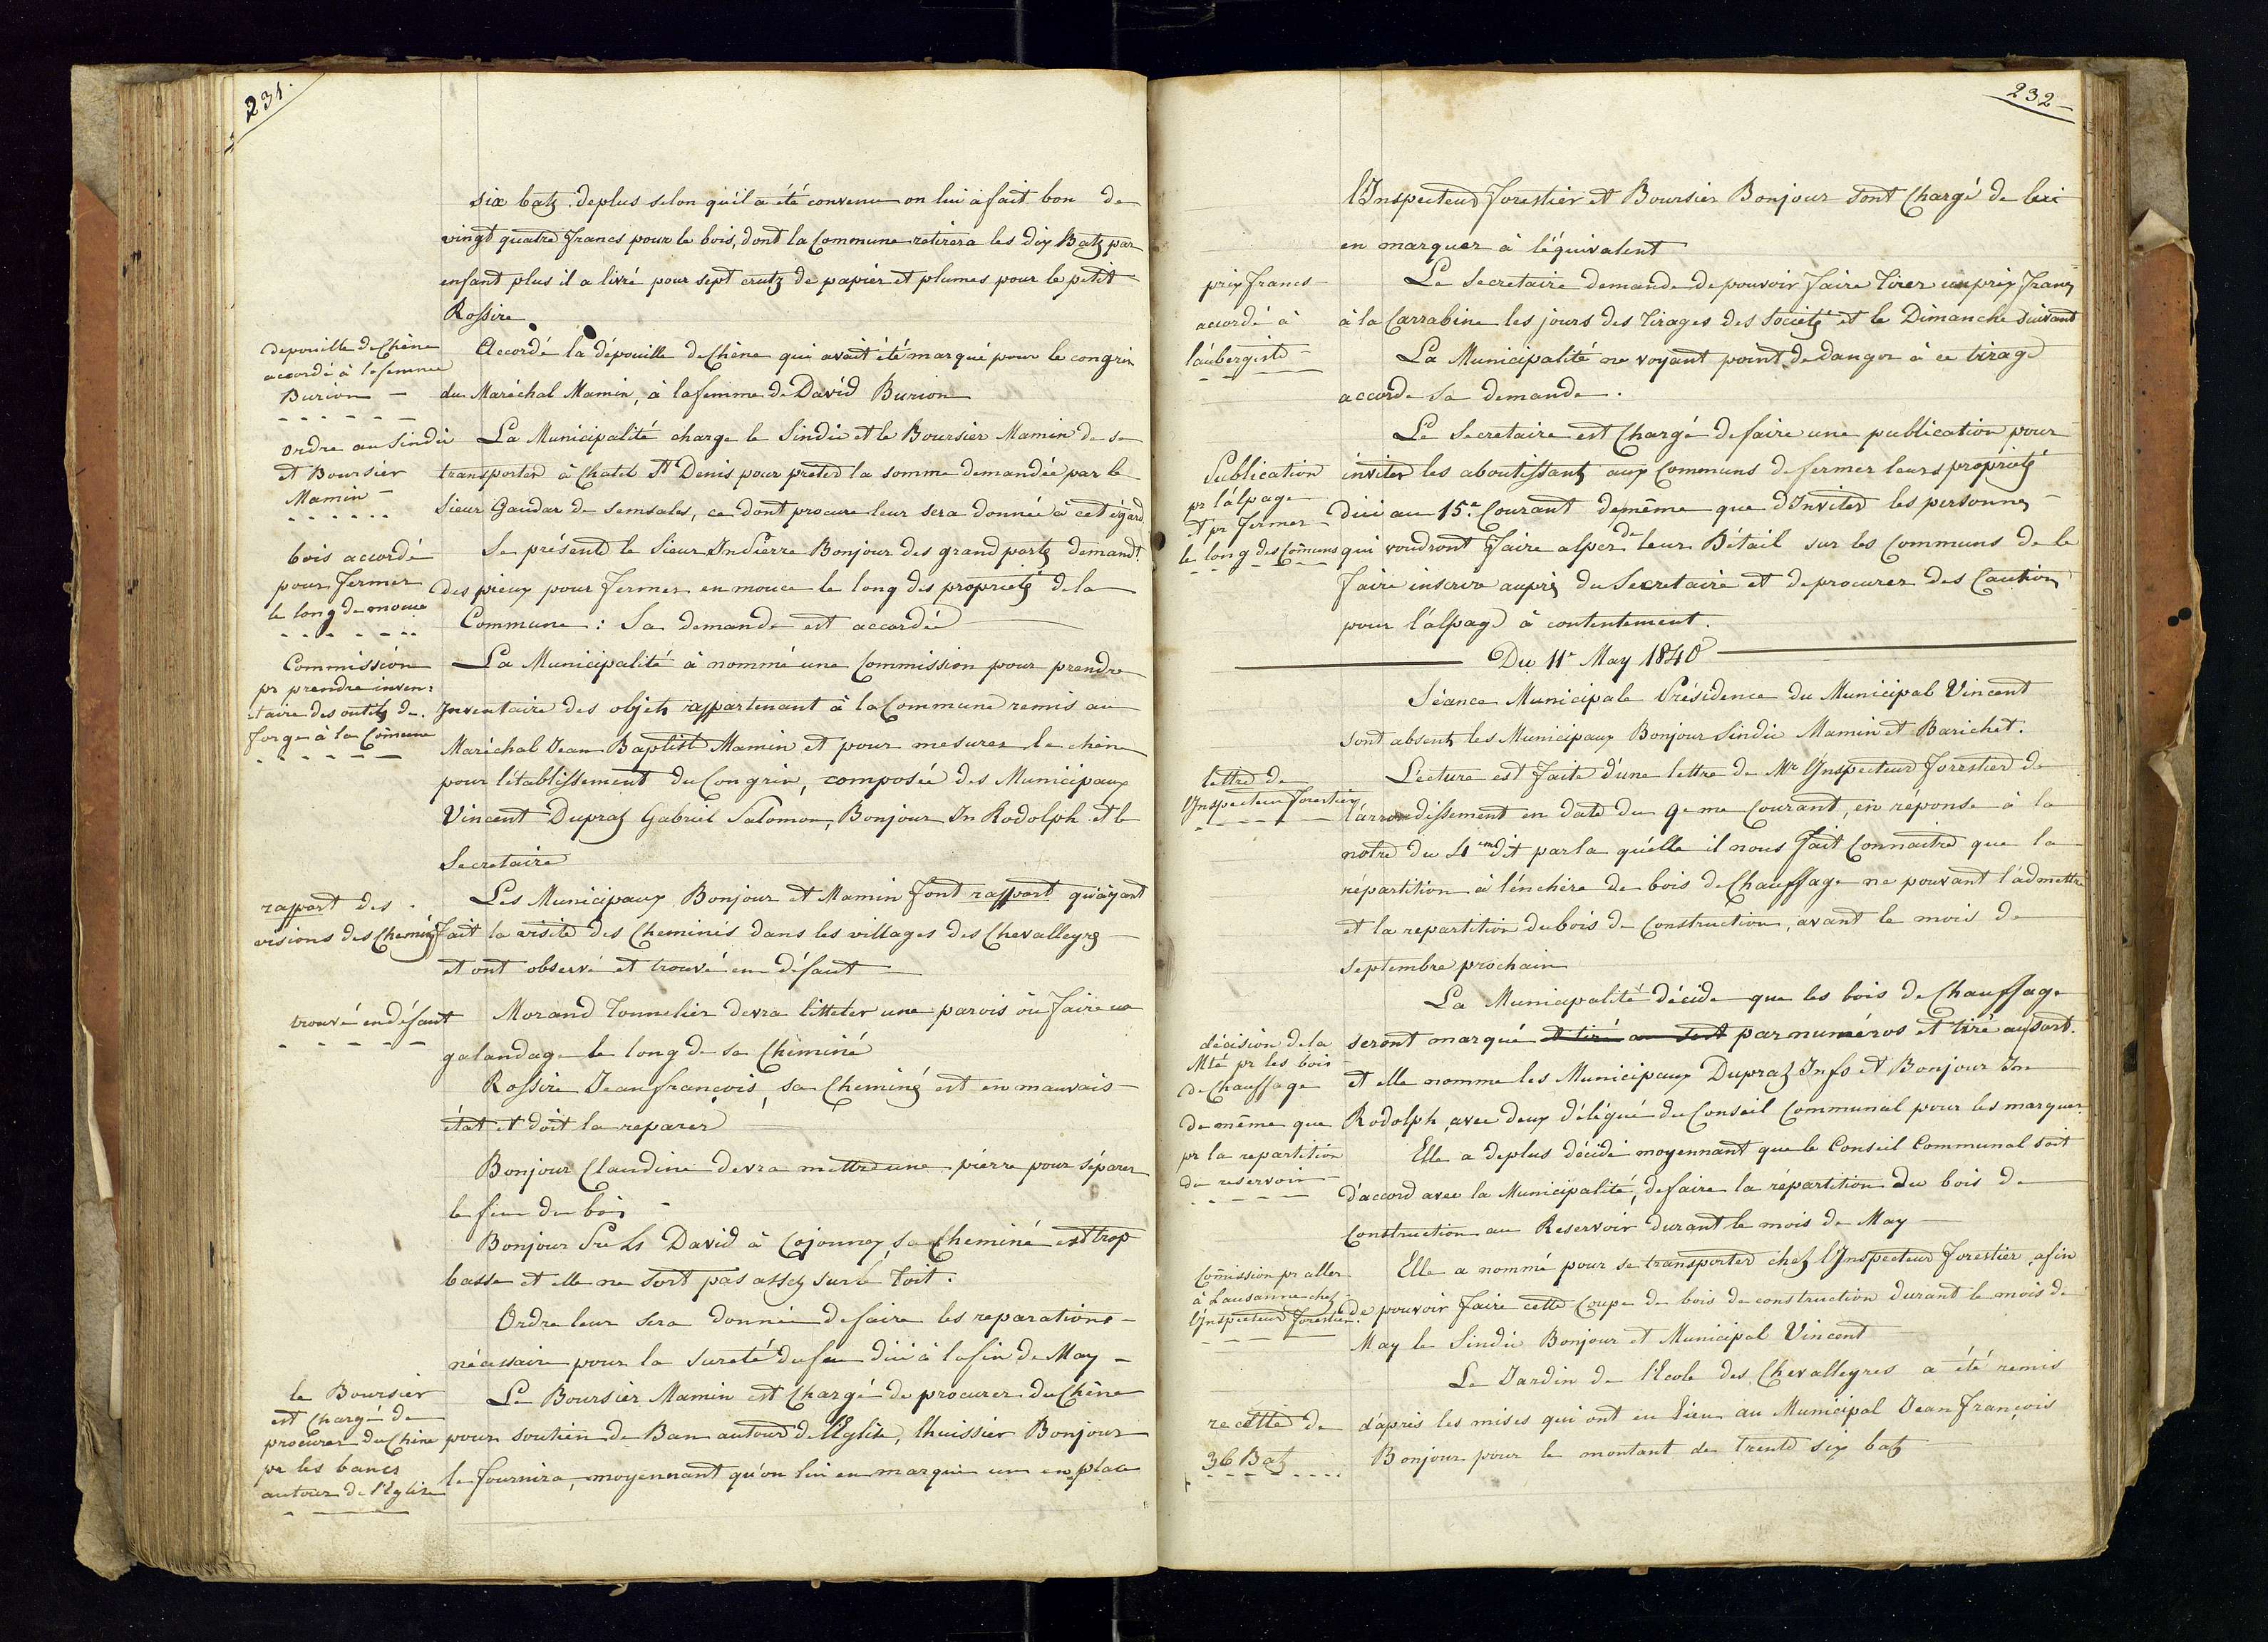 231.
six batz. deplus selon qu'il a été convenu on lui a fait bon de
vingt quatre francs pour le bois, dont la Commune retirera les dix Batz par
enfant plus il a livré pour sept crutz de papier et plumes pour le petit
Rossire
depouille de Chêne
accordé à la femme
Burion
Accordé la dépouille de Chêne qui avait été marqué pour le congrin
du Maréchal Mamin, à la femme de David Burion
ordre au Sindic
et Boursier
Mamin
La Municipalité charge le Sindic et le Boursier Mamin de se
transporter à Chatel St Denis pour preter la somme demandée par le
Sieur Gaudar de Semsales, ce dont procure leur sera donnée à cet égard
bois accordé
pour fermer
le long de mouce
Se présente le Sieur Jn Pierre Bonjour des grand partz demandt
des pieux pour fermer en mouce le long des proprietz de la
Commune : Sa demande est accordé
Commission
pr prendre inven:
:taire des outilz de
forge à la Comune
La Municipalité à nommé une Commission pour prendre
Inventaire des objets appartenant à la Commune remis au
Maréchal Jean Baptist Mamin et pour mesurer le chêne
pour l'établissement du Congrin, composée des Municipaux
Vincent Dupraz Gabriel Salomon, Bonjour Jn Rodolph et le
Secretaire
rapport des
visions des Cheminé
Les Municipaux Bonjour et Mamin font rapport qu'ayant
fait la visite des Cheminés dans les villages des Chevalleyrs
et ont observé et trouvé en défaut
trouvé en défaut
Morand Tonnelier devra litteler une parois où faire un
galandage le long de sa Cheminé
Rossire Jean françois, sa Cheminé est en mauvais
état et doit la reparer
Bonjour Claudine devra mettre une pierre pour séparer
le feu du bois
Bonjour Pre Ls David à Cojonney, sa Cheminé est trop
basse et elle ne sort pas assez sur le toit.
Ordre leur sera donnée de faire les reparations
nécessaire pour la sureté du feu dici à la fin de May
le Boursier
est Chargé de
procurer du Chêne
pr les bancs
autour de l'Eglise
Le Boursier Mamin est Chargé de procurer du Chêne
pour soutien de Ban autour de l'Eglise, l'huissier Bonjour
le fournira, moyennant qu'on lui en marque un en place
232
l'Inspecteur forestier et Boursier Bonjour sont Chargé de lui
en marquer à l'équivalent
prix francs
accordé à
l'aubergiste
Le Secretaire demande de pouvoir faire tirer un prix franc
à la Carrabine les jours des tirages des Societé et le Dimanche suivant
La Municipalité ne voyant point de danger à ce tirage
accorde sa demande.
Publication
pr l'alpage
et pr fermer
le long des Comuns
Le Secretaire est Chargé de faire une publication pour
inviter les aboutissants aux Communs de fermer leurs propriété
dici au 15e Courant demême que d'Inviter les personnes
qui voudront faire alper de leur Bétail sur les Communs de le
faire inscrire auprès du Secretaire et de procurer des Caution
pour l'alpage à contentement.
Du 11e May 1840
Séance Municipale Présidence du Municipal Vincent
sont absents les Municipaux Bonjour Sindic Mamin et Barichet.
lettre de
l'Inspecteur forestier
Lecture est faite d'une lettre de Mr l'Inspecteur forestier de
l'arrondissement en date du 9eme Courant, en réponse à la
notre du 4em dit par la qu'elle il nous fait Connaitre que la
répartition à l'enchère de bois de Chauffage ne pouvant l'admettre
et la repartition du bois de construction, avant le mois de
Septembre prochain
décision de la
Mté pr les bois
de Chauffage
de même que
pr la repartition
du reservoir
La Municipalité décide que les bois de Chauffage
seront marqué et tiré au sort par numéros et tiré au sort.
et elle nomme les Municipaux Dupraz Insp et Bonjour Jn
Rodolph, avec deux délégué du Conseil Communal pour les marquer
Elle a deplus décidé moyennant que le Conseil Communal soit
d'accord avec la Municipalité, de faire la répartition du bois de
Construction au Reservoir durant le mois de May
Comission pr aller
à Lausanne chez
l'Inspecteur forestier
Elle a nommé pour se transporter chez l'Inspecteur forestier, afin
de pouvoir faire cette coupe de bois de construction durant le mois de
May le Sindic Bonjour et Municipal Vincent
recette de
36 Batz
Le Jardin de l'Ecole des Chevalleyres a été remis
d'après les mises qui ont eu lieu au Municipal Jean françois
Bonjour pour le montant de trente six batz